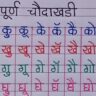 पूर्ण चौदाखडी
कु कू के कॅ कै को
खु खू खे खॅ खै खो
गु गू गे गॅ गै गो
घु घू घे घॅ घै घो